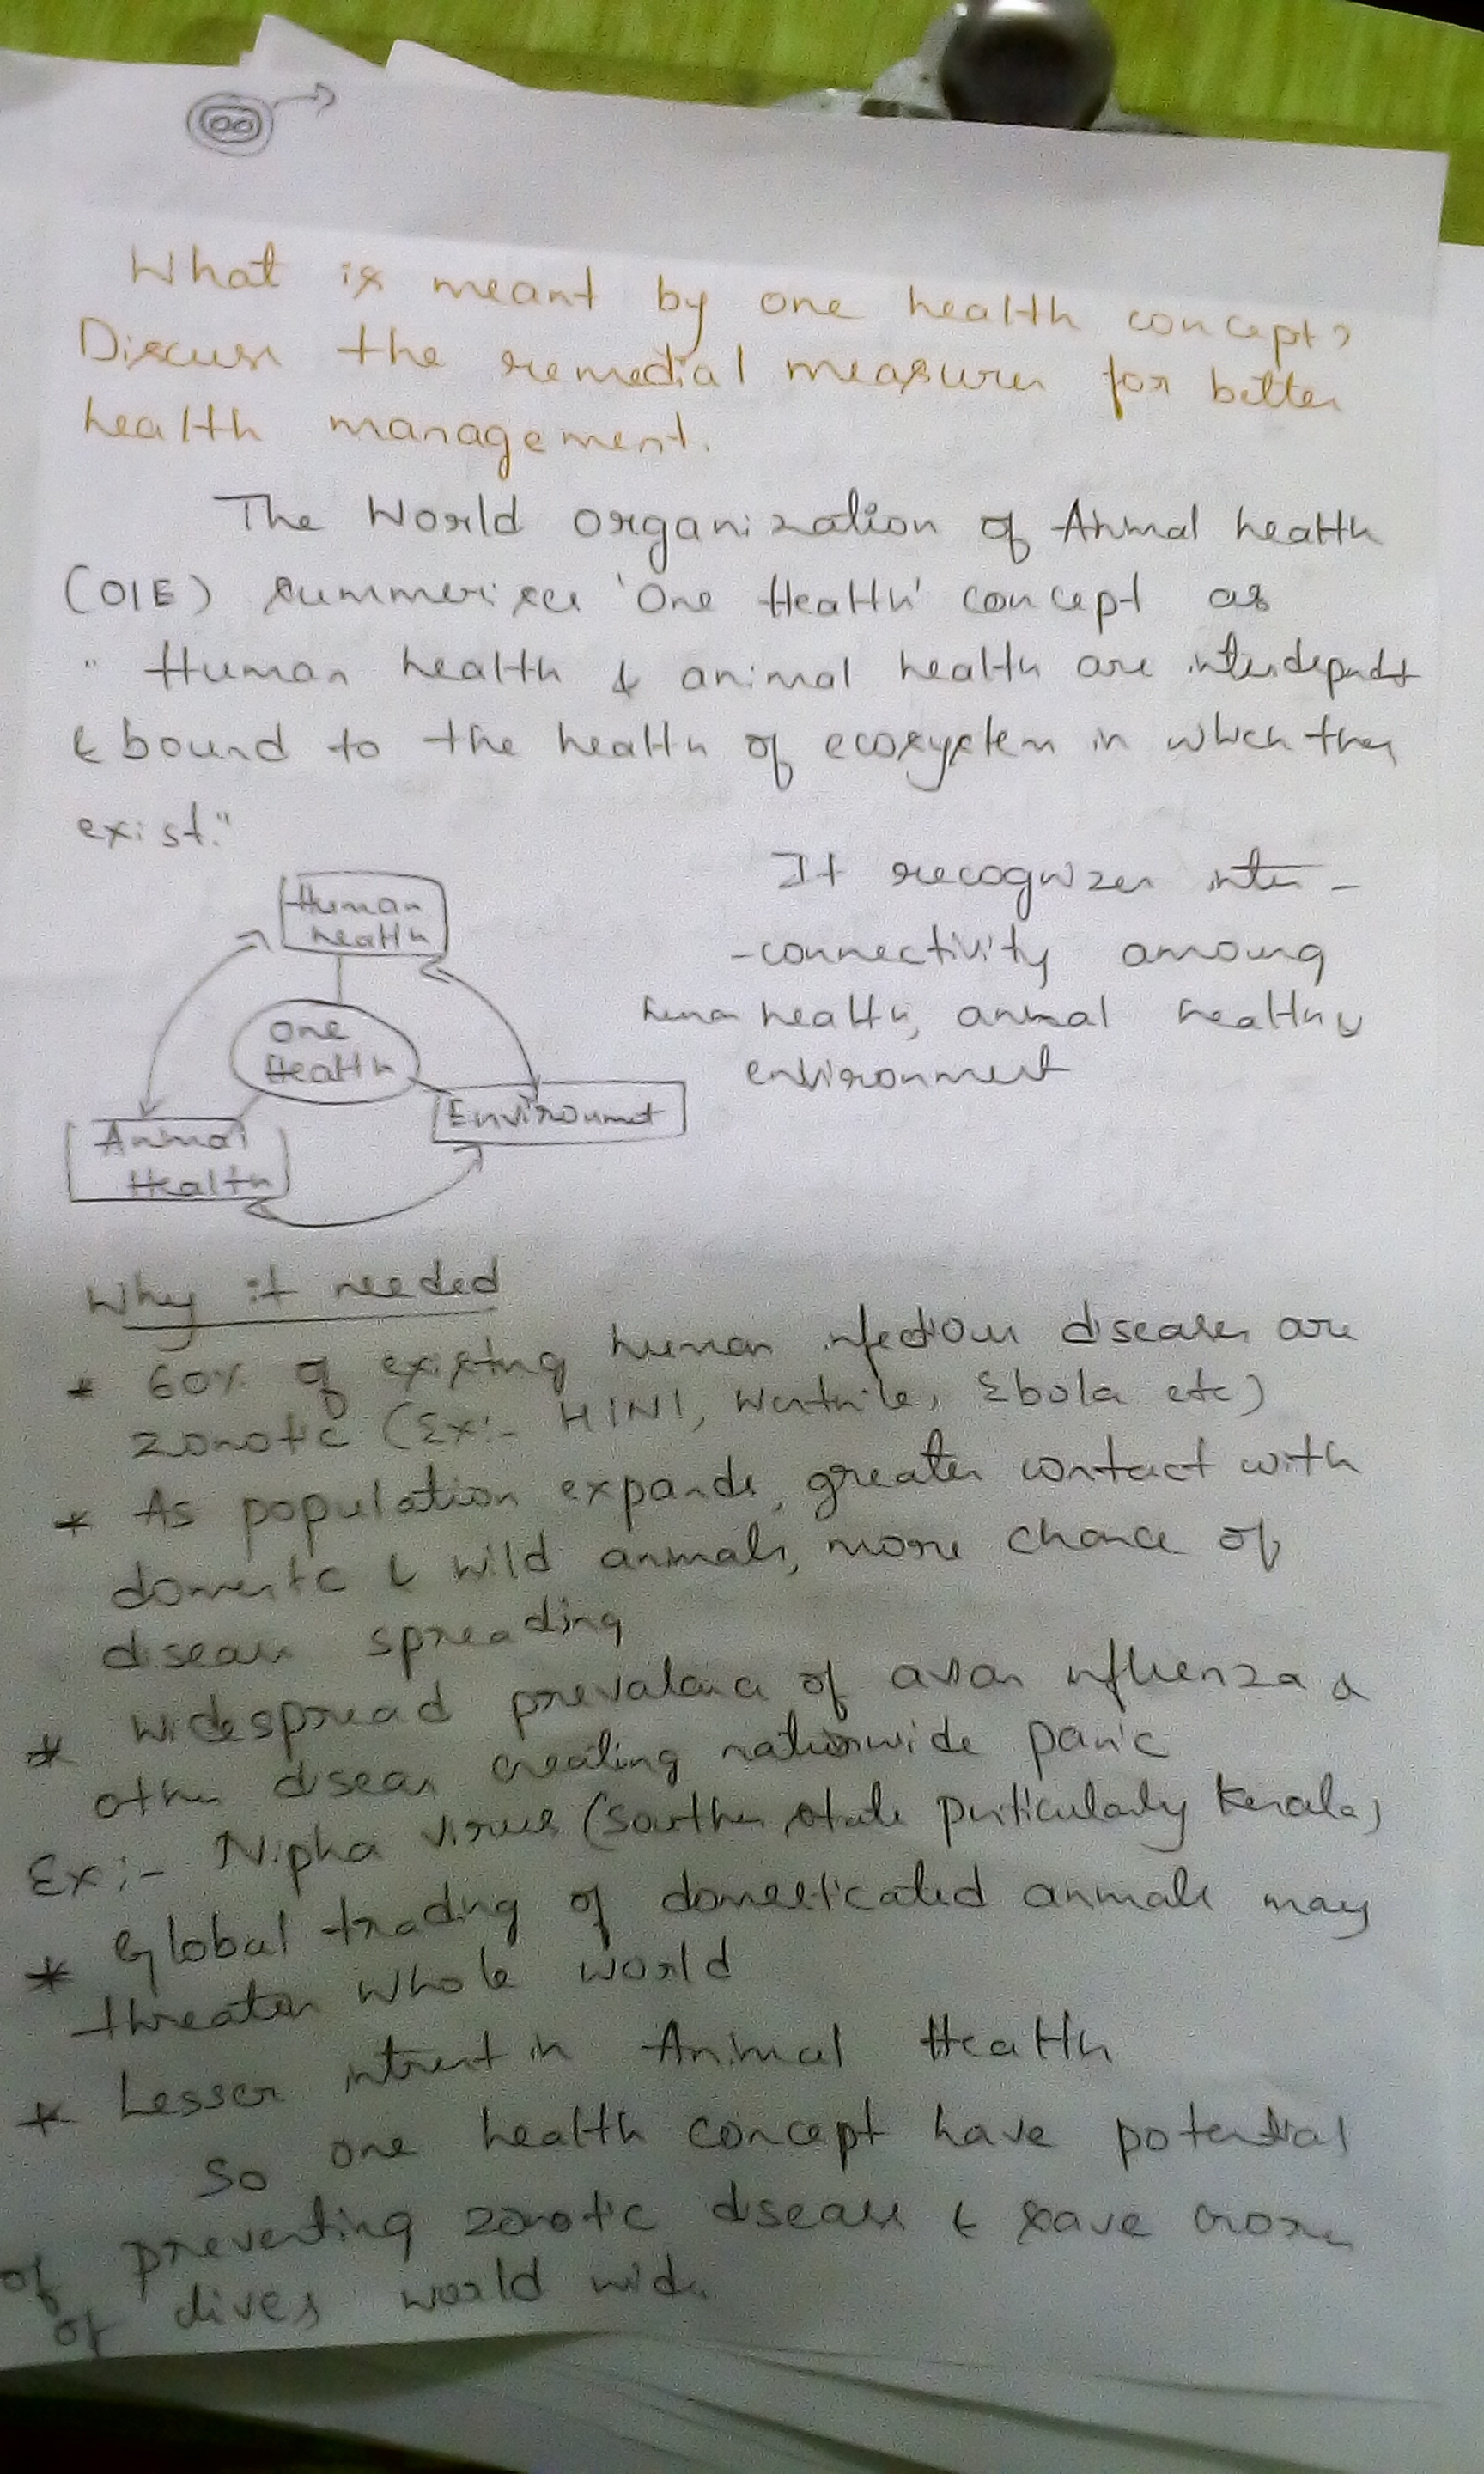 What is meant by one health concept?
Discuss the remedial measures for better
health management.
The World organization of Animal health
(OIE) summerises 'One Health' concept as
" Human health & animal health are interdependt
& bound to the health of ecosystem in which they
exist."
Human
health
One
Health
Animal
Health
Environmet
It recognizes inter-
-connectivity among
human health, animal health &
environment
Why it needed
* 60% of existing human infectious diseases are
zonotic (Ex:- H1N1, Westnile, Ebola etc)
* As population expands, greater contact with
domestic & wild animals, more chance of
disease spreading
* widespread prevalance of avian influenza &
other diseas creating nationwide panic
Ex:- Nipha virus (Southern state perticularly Kerala)
* Global trading of domesticated animals may
threaten whole world
* Lesser intrest in Animal Health
So one health concept have potential
of preventing zonotic disease & save crores
of lives world wide.